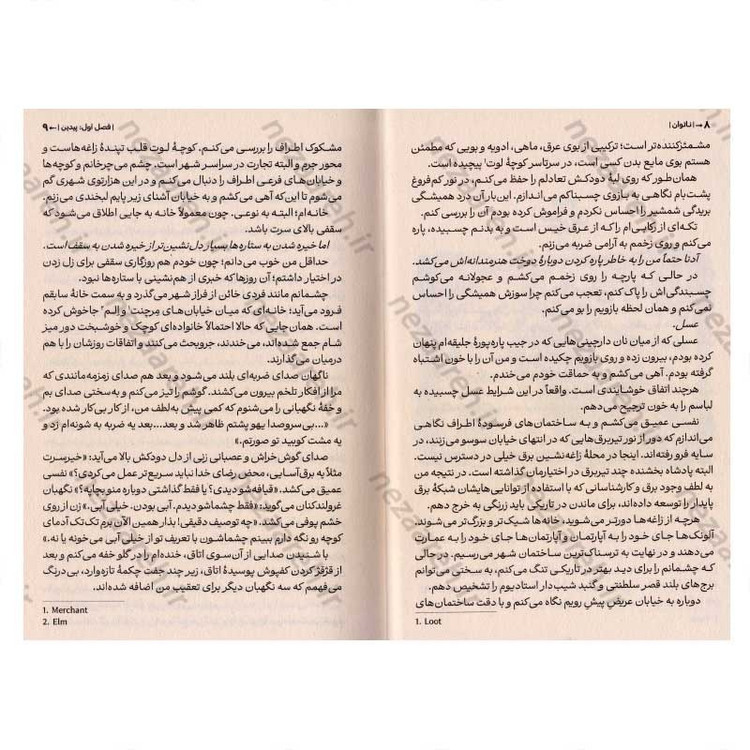 ۸ → | ناتوان |
مشمئزکننده‌تر است؛ ترکیبی از بوی عرق، ماهی، ادویه و بویی که مطمئن
هستم بوی مایع بدن کسی است، در سرتاسر کوچهٔ لوت۱ پیچیده است.
همان‌طور که روی لبهٔ دودکش تعادلم را حفظ می‌کنم، در نور کم‌فروغ
پشت‌بام نگاهی به بازوی چسبناکم می‌اندازم. این‌بار آن درد همیشگی
بریدگی شمشیر را احساس نکردم و فراموش کرده بودم آن را بررسی کنم.
تکه‌ای از زکاپی‌ام را که از عرق خیس است و به بدنم چسبیده، پاره
می‌کنم و روی زخمم به آرامی ضربه می‌زنم.
آدنا حتماً من را به خاطر پاره کردن دوبارهٔ دوخت هنرمندانه‌اش می‌کشد.
در حالی که پارچه را روی زخمم می‌کشم و عجولانه می‌کوشم
چسبندگی‌اش را پاک کنم، تعجب می‌کنم چرا سوزش همیشگی را احساس
نمی‌کنم و همان لحظه بازویم را بو می‌کنم.
عسل.
عسلی که از میان نان دارچینی‌هایی که در جیب پاره‌پورهٔ جلیقه‌ام پنهان
کرده بودم، بیرون زده و روی بازویم چکیده است و من آن را با خون اشتباه
گرفته بودم. آهی می‌کشم و به حماقت خودم می‌خندم.
هرچند اتفاق خوشایندی است. واقعاً در این شرایط عسل چسبیده به
لباسم را به خون ترجیح می‌دهم.
نفسی عمیق می‌کشم و به ساختمان‌های فرسودهٔ اطراف نگاهی
می‌اندازم که دور از نور تیربرق‌هایی که در انتهای خیابان سوسو می‌زنند، در
سایه فرو رفته‌اند. اینجا در محلهٔ زاغه‌نشین برق خیلی در دسترس نیست.
البته پادشاه بخشنده چند تیربرق در اختیارمان گذاشته است. در نتیجه من
به لطف وجود برق و کارشناسانی که با استفاده از توانایی‌هایشان شبکهٔ برق
پایدار را توسعه داده‌اند، برای ماندن در تاریکی باید زرنگی به خرج دهم.
هرچه از زاغه‌ها دورتر می‌شوید، خانه‌ها شیک‌تر و بزرگ‌تر می‌شوند.
آلونک‌ها جای خود را به آپارتمان و آپارتمان‌ها جای خود را به عمارت
می‌دهند و در نهایت به ترسناک‌ترین ساختمان شهر می‌رسیم. در حالی
که چشمانم را برای دید بهتر در تاریکی تنگ می‌کنم، به سختی می‌توانم
برج‌های بلند قصر سلطنتی و گنبد شیب‌دار استادیوم را تشخیص دهم.
دوباره به خیابان عریض پیش رویم نگاه می‌کنم و با دقت ساختمان‌های
1. Loot
| فصل اول: پیدین | ← ۹
مشکوک اطراف را بررسی می‌کنم. کوچهٔ لوت قلب تپندهٔ زاغه‌هاست و
محور جرم و البته تجارت در سراسر شهر است. چشم می‌چرخانم و کوچه‌ها
و خیابان‌های فرعی اطراف را دنبال می‌کنم و در این هزارتوی شهری گم
می‌شوم تا این‌که آهی می‌کشم و به خیابان آشنای زیر پایم لبخندی می‌زنم.
خانه‌ام؛ البته به نوعی. چون معمولاً خانه به جایی اطلاق می‌شود که
سقفی بالای سرت باشد.
اما خیره شدن به ستاره‌ها بسیار دل‌نشین‌تر از خیره شدن به سقف است.
حداقل من خوب می‌دانم؛ چون خودم هم روزگاری سقفی برای زل زدن
در اختیار داشتم؛ آن روزها که خبری از هم‌نشینی با ستاره‌ها نبود.
چشمانم مانند فردی خائن از فراز شهر می‌گذرد و به سمت خانهٔ سابقم
فرود می‌آید؛ خانه‌ای که میان خیابان‌های مرچنت۱ و اِلم۲ جاخوش کرده
است. همان‌جایی که حالا احتمالاً خانواده‌ای کوچک و خوشبخت دور میز
شام جمع شده‌اند، می‌خندند، جروبحث می‌کنند و اتفاقات روزشان را با هم
درمیان می‌گذارند.
ناگهان صدای ضربه‌ای بلند می‌شود و بعد هم صدای زمزمه‌مانندی که
مرا از افکار تلخم بیرون می‌کشند. گوشم را تیز می‌کنم و به‌سختی صدای بم
و خفهٔ نگهبانی را می‌شنوم که کمی پیش به‌لطف من، از کار بی‌کار شده بود.
«...بی‌سروصدا یهو پشتم ظاهر شد و بعد...بعد یه ضربه به شونه‌ام زد و
یه مشت کوبید تو صورتم.»
صدای گوش‌خراش و عصبانی زنی از دل دودکش بالا می‌آید: «خیرسرت
مثلاً یه برق‌آسایی، محض رضای خدا نباید سریع‌تر عمل می‌کردی؟» نفسی
عمیق می‌کشد. «قیافه‌شو دیدی؟ یا فقط گذاشتی دوباره منو بچاپه؟» نگهبان
غرولندکنان می‌گوید: «فقط چشماشو دیدم. آبی بودن. خیلی آبی.» زن از روی
خشم پوفی می‌کشد. «چه توصیف دقیقی! بذار همین الآن برم تک‌تک آدمای
کوچه رو نگه دارم ببینم چشماشون با تعریف تو از خیلی آبی می‌خونه یا نه.»
با شنیدن صدایی از آن‌سوی اتاق، خنده‌ام را در گلو خفه می‌کنم و بعد
از قژقژ کردن کفپوش پوسیدهٔ اتاق، زیر چند جفت چکمهٔ تازه‌وارد، بی‌درنگ
می‌فهمم که سه نگهبان دیگر برای تعقیب من اضافه شده‌اند.
1. Merchant
2. Elm